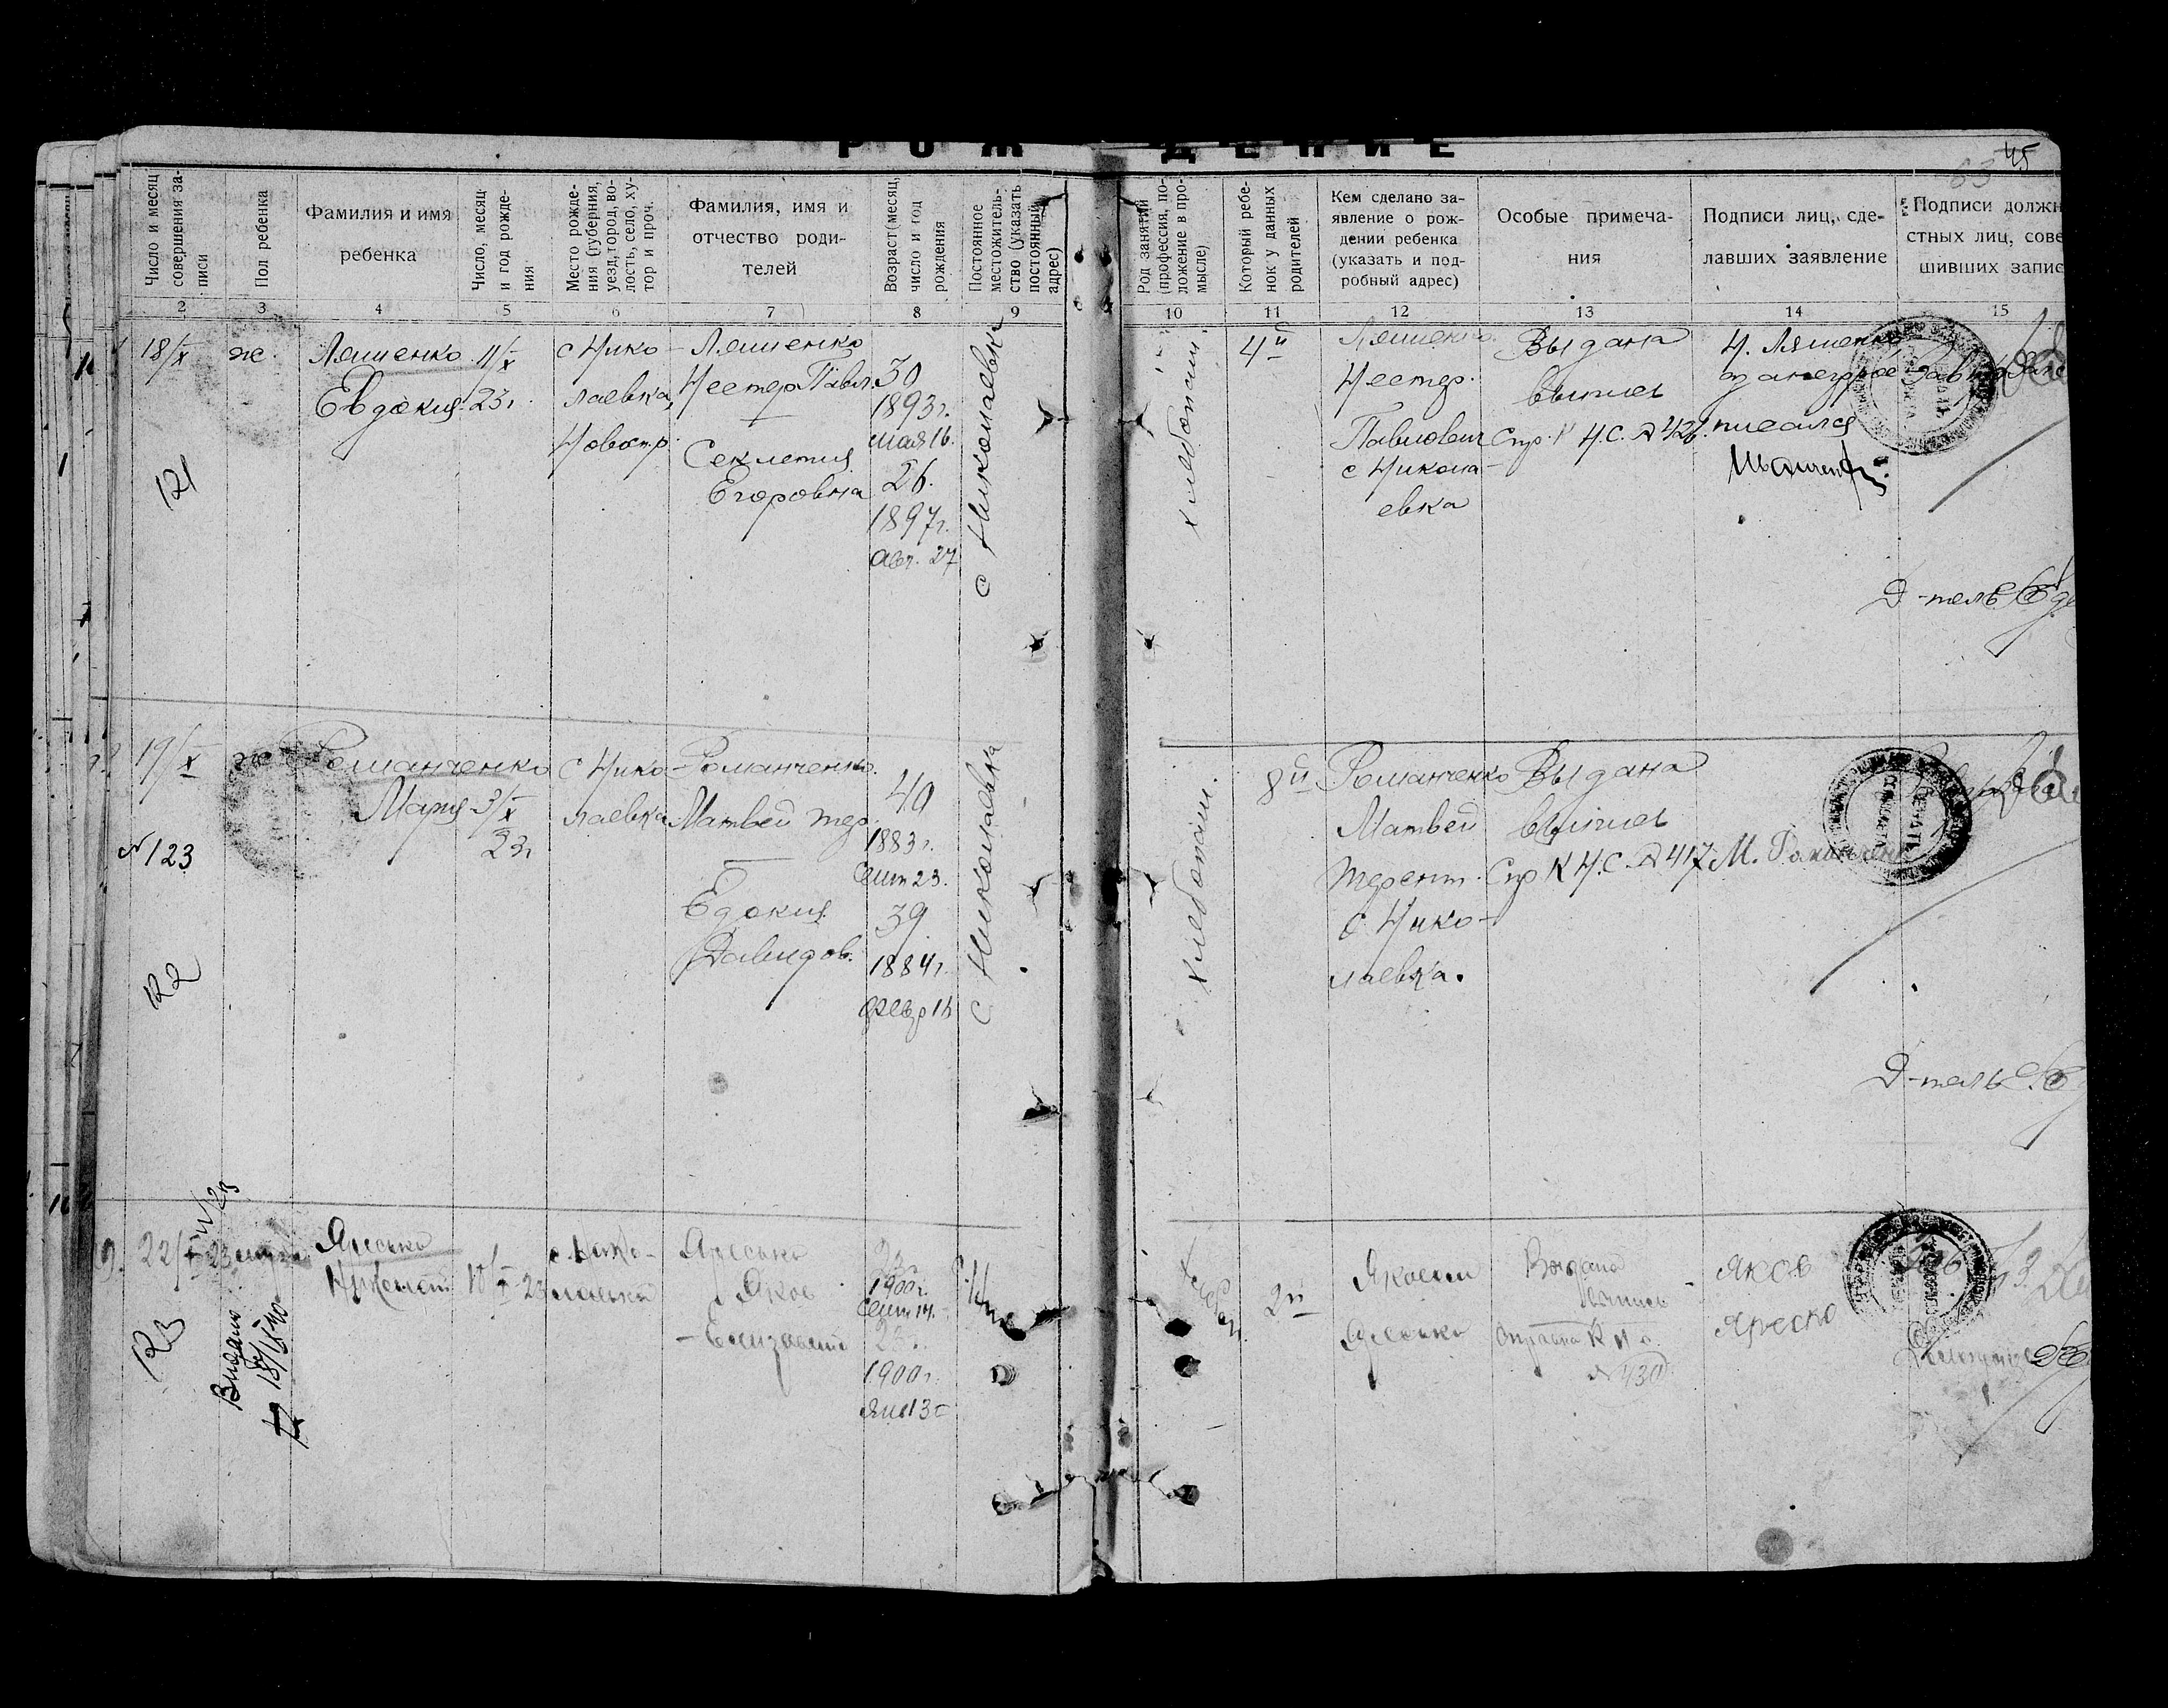 РОЖДЕНИЕ
45
63
Число и месяц
совершения за-
писи
Пол ребенка
Фамилия и имя
ребенка
Число, месяц
и год рожде-
ния
Место рожде-
ния (губерния,
уезд, город, во-
лость, село, ху-
тор и проч.
Фамилия, имя и
отчество роди-
телей
Возраст (месяц,
число и год
рождения
Постоянное
местожитель-
ство (указать
постоянный
адрес)
Род занятий
(профессия, по-
ложение в про-
мысле)
Который ребе-
нок у данных
родителей
Кем сделано за-
явление о рож-
дении ребенка
(указать и под-
робный адрес)
Особые примеча-
ния
Подписи лиц, сде-
лавших заявление
Подписи должн
стных лиц, сове
шивших запис
2 3 4 5 6 7 8 9 10 11 12 13 14 15
18/X
121
ж.
Ляшенко
Евдокия
11/X
23г.
с Нико-
лаевка,
Новостр.
Ляшенко
Нестер Павл.
Секлетия
Егоровна
30
1893г.
мая 16.
26.
1897г.
авг. 27
с Николаевка
хлебопаш.
4й
Ляшенко
Нестер.
Павлович
с Никола-
евка
Выдана
выпись
Спр. К Н.С. № 426.
Н. Ляшенко
писался
Д-тель
19/X
№123
122
ж
Романченко
Мария
3/X
23г
с Нико-
лаевка
Романченко.
Матвей Тер.
Едокия
Давидов.
40
1883г.
Сент 23.
39
1884г.
февр 16
с Николаевка
хлебопаш.
8й
Романченко
Матвей
Терент.
с Нико-
лаевка.
Выдана
выпись
Спр К Н.С. № 417
М. Романченко
Д-тель
22/X 23
123
Яресько
10/X 23
с. Нико-
лаевка
Яресько
Яков
Елизавета
23
1900г.
Сент 14.
23
1900г.
Янв 13
2й
Яресько
Выдана
выпись
Справка К Н
№ 430
Яков
Яреско